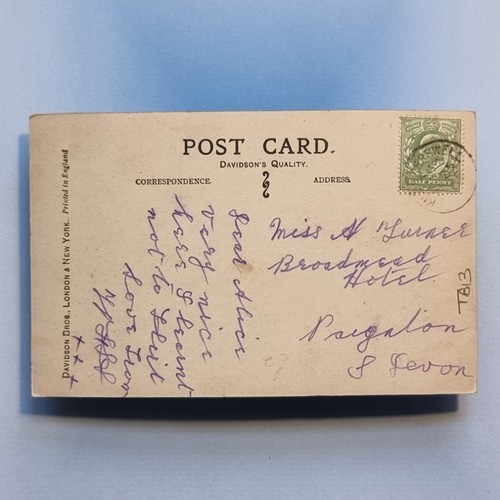 POST CARD.
DAVIDSON'S QUALITY.
CORRESPONDENCE.
ADDRESS.
HALF PENNY
Dear Alice
Very nice
have I learnt
not to flirt
Love from
x x x
Miss A Turner
Broadmead
Hotel.
Paignton
S Devon
TB13
DAVIDSON BROS., LONDON & NEW YORK. Printed in England